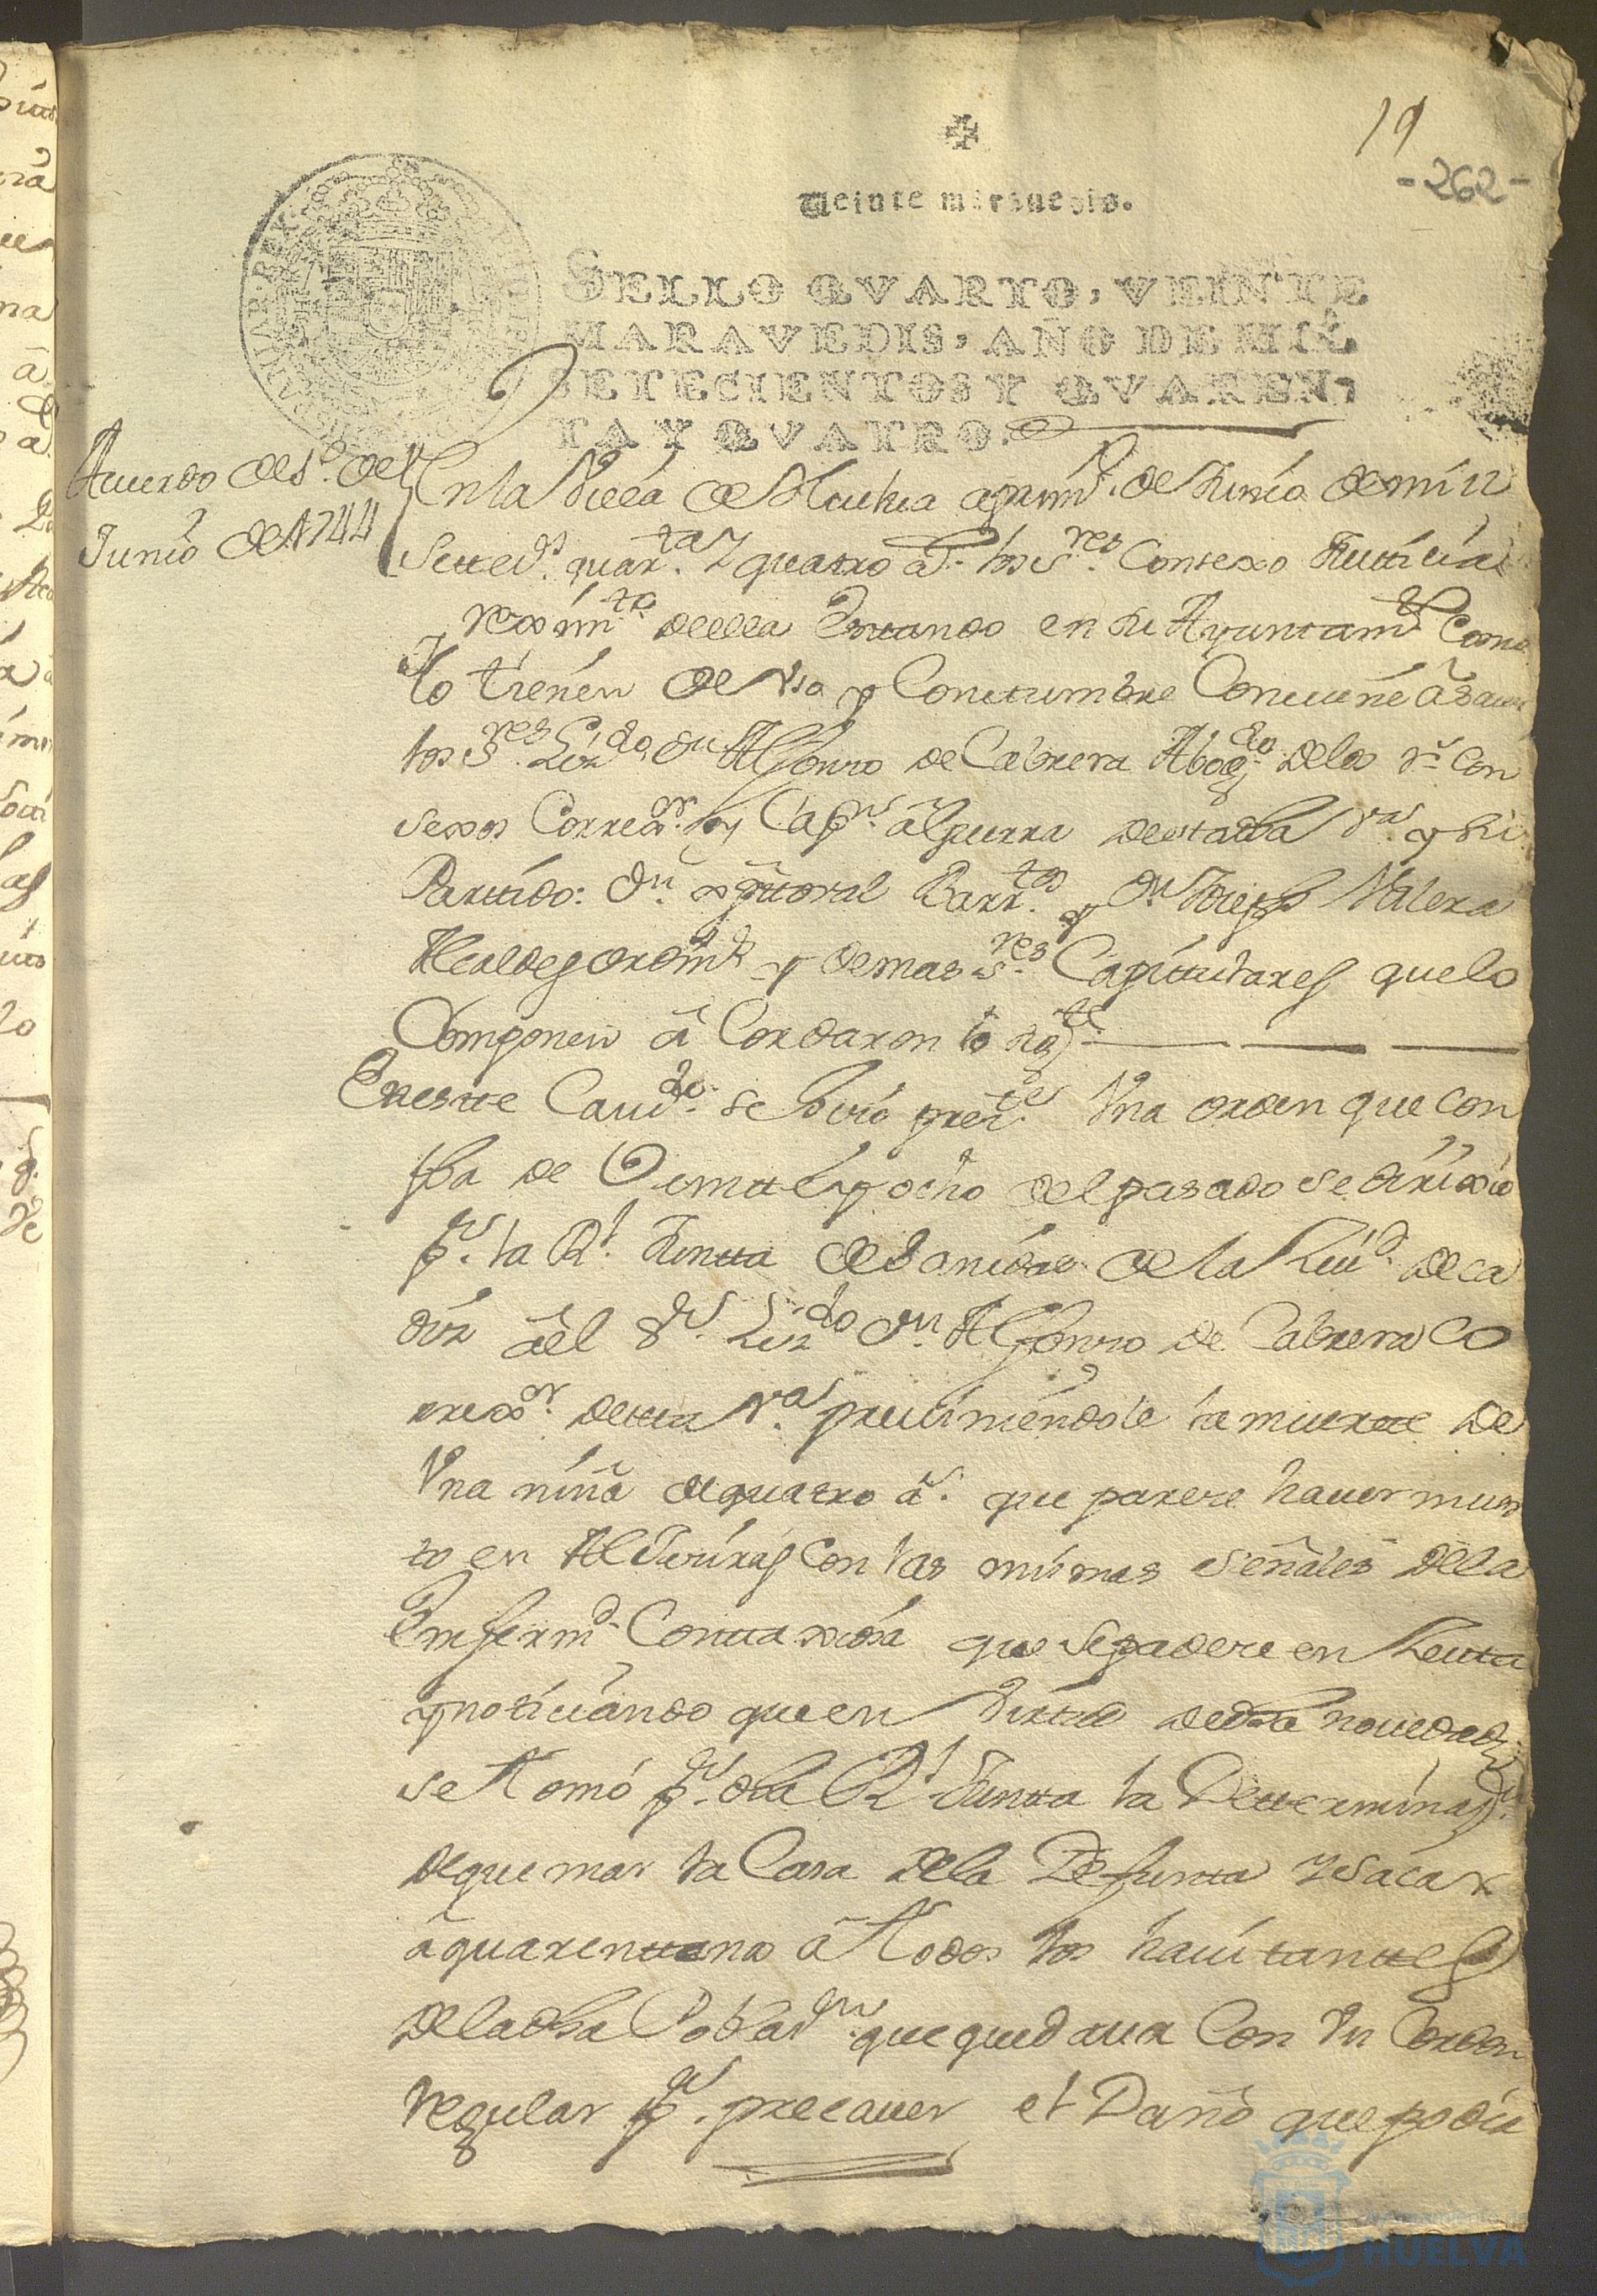 19
-262-
Veinte maravedis.
SELLO QVARTO, VEINTE
MARAVEDIS, AÑO DE MIL
SETECIENTOS Y QVAREN,
TA Y QVATRO.
Acuerdo de 1º. de
Junio de 1744
En la Villa de Huelva a prim.º de Junio de mill
Settec.ˢ quar.ᵗᵃ y quatro a.ˢ los S.ʳᵉˢ Consexo Justticia
y reximi.ᵗᵒ de ella Estando en su Ayuntam.ᵗᵒ Como
lo tienen de Vso y Constumbre Conuiene â sauer
los S.ʳᵉˢ Liz.ᵈᵒ Dⁿ Alfonso de Cabrera Abog.ᵈᵒ de los r.ˢ Con
sexos Correx.ᵒʳ y Cap.ⁿ â guerra de esta dha V.ᵃ y su
Parttido: Dⁿ. Barr.ᵗᵒˢ y Dⁿ Joseph Valera
Alcaldes ordin.ˢ y demas S.ʳᵉˢ Capittulares que lo
Componen â Cordaron lo sig.ᵗᵉ
En este Cauil.ᵈᵒ se hizo pres.ᵗᵉ Vna orden que con
fha de Veintte y ocho del pasado se dirixio
p.ʳ la R.ˡ Juntta de Sanidad de la Ziu.ᵈ de Ca
diz âel S.ʳ Liz.ᵈᵒ Dⁿ Alfonso de Cabrera Co
rrex.ᵒʳ de esta V.ᵃ preuiniendole la muertte de
Vna niña de quatro a.ˢ que parece hauer muer
to en Algeziras con las mismas señales de la
Enferm.ᵈ Conttaxiosa que se padece en Zeuta
y noticiando que en Virtud de esta nouedad
se tomó p.ʳ dha R.ˡ Juntta la Dettermina.ⁿ
de quemar la Casa de la Defunta y sacar
â quarenttena â todos los hauitanttes
de la dha Poblaz.ⁿ que quedaua Con Vn Cordon
regular p.ᵃ precauer el Daño que podia
HUELVA